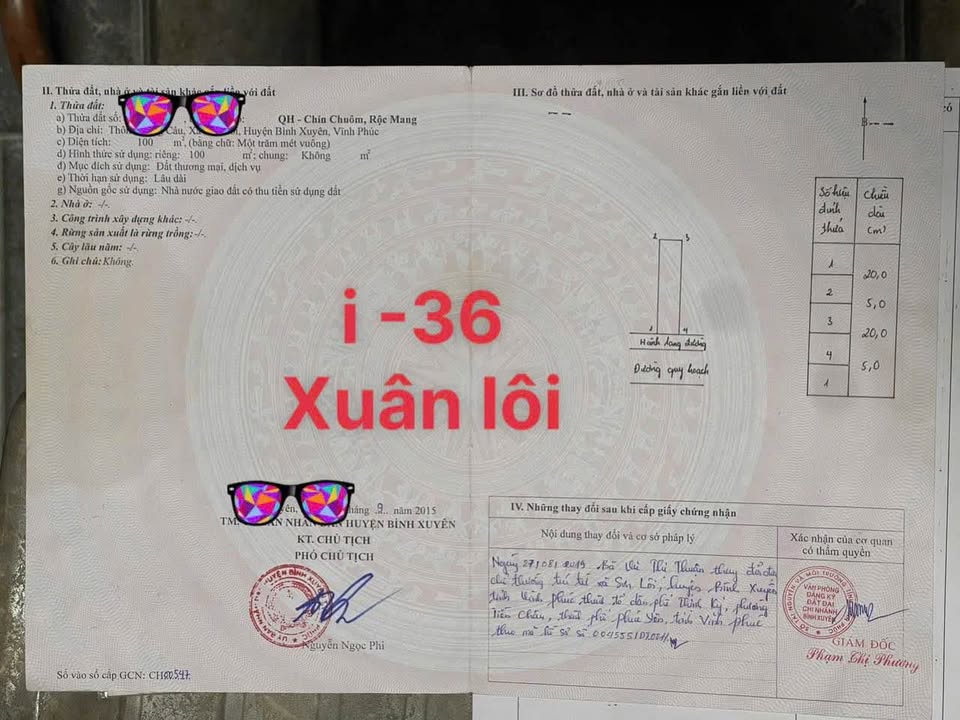 II. Thửa đất, nhà ở và tài sản khác gắn liền với đất
1. Thửa đất:
a) Thửa đất số: QH - Chín Chuôm, Rộc Mang
b) Địa chỉ: Thôn Câu, Xã Huyện Bình Xuyên, Vĩnh Phúc
c) Diện tích: 100 m², (bằng chữ: Một trăm mét vuông)
d) Hình thức sử dụng: riêng: 100 m²; chung: Không m²
đ) Mục đích sử dụng: Đất thương mại, dịch vụ
e) Thời hạn sử dụng: Lâu dài
g) Nguồn gốc sử dụng: Nhà nước giao đất có thu tiền sử dụng đất
2. Nhà ở: -/-.
3. Công trình xây dựng khác: -/-.
4. Rừng sản xuất là rừng trồng: -/-.
5. Cây lâu năm: -/-.
6. Ghi chú: Không.
i -36
Xuân lôi
tháng 9 năm 2015
TM. NHÂN DÂN HUYỆN BÌNH XUYÊN
KT. CHỦ TỊCH
PHÓ CHỦ TỊCH
Nguyễn Ngọc Phi
Số vào sổ cấp GCN: CH00547
III. Sơ đồ thửa đất, nhà ở và tài sản khác gắn liền với đất
B
Số hiệu đỉnh thửa
Chiều dài (m)
1
20,0
2
5,0
3
20,0
4
5,0
1
2 3
1 4
Hành lang đường
Đường quy hoạch
IV. Những thay đổi sau khi cấp giấy chứng nhận
Nội dung thay đổi và cơ sở pháp lý
Xác nhận của cơ quan
có thẩm quyền
Ngày 27/08/2019 Bà Thị Thuận thay đổi địa
chỉ thường trú tại xã Sơn Lôi, huyện Bình Xuyên
tỉnh Vĩnh Phúc thành tổ dân phố Thịnh Kỷ, phường
Tiền Châu, thành phố Phúc Yên, tỉnh Vĩnh Phúc
theo hồ sơ số
VĂN PHÒNG
ĐĂNG KÝ
ĐẤT ĐAI
CHI NHÁNH
BÌNH XUYÊN
GIÁM ĐỐC
Phạm Thị Phương
có